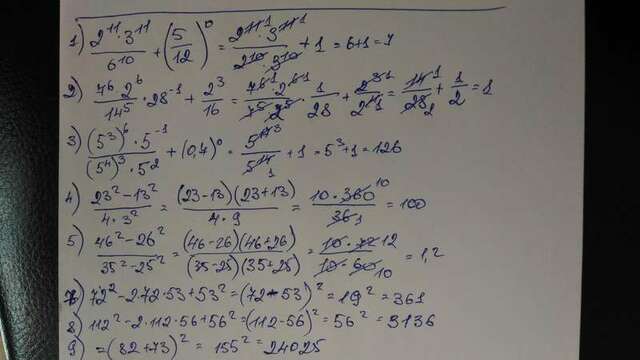 1) (2^11 · 3^11)/6^10 + (5/12)^0 = (2^11 1 · 3^11 1)/(2^10 · 3^10) + 1 = 6+1 = 7
2) (7^6 · 2^6)/14^5 · 28^-1 + 2^3/16 = (7^6 1 · 2^6 1)/(7^5 · 2^5) · 1/28 + 2^3 1/2^4 1 = 14 1/28 2 + 1/2 = 1
3) ((5^3)^6 · 5^-1)/((5^4)^3 · 5^2) + (0,7)^0 = 5^17 3/5^14 1 + 1 = 5^3+1 = 126
4) (23^2 - 13^2)/(4 · 3^2) = (23-13)(23+13)/(4 · 9) = (10 · 360 10)/(36 1) = 100
5) (46^2 - 26^2)/(35^2 - 25^2) = (46-26)(46+26)/(35-25)(35+25) = (10 · 72 12)/(10 · 60 10) = 1,2
7) 72^2 - 2·72·53 + 53^2 = (72-53)^2 = 19^2 = 361
8) 112^2 - 2·112·56 + 56^2 = (112-56)^2 = 56^2 = 3136
9) = (82+73)^2 = 155^2 = 24025